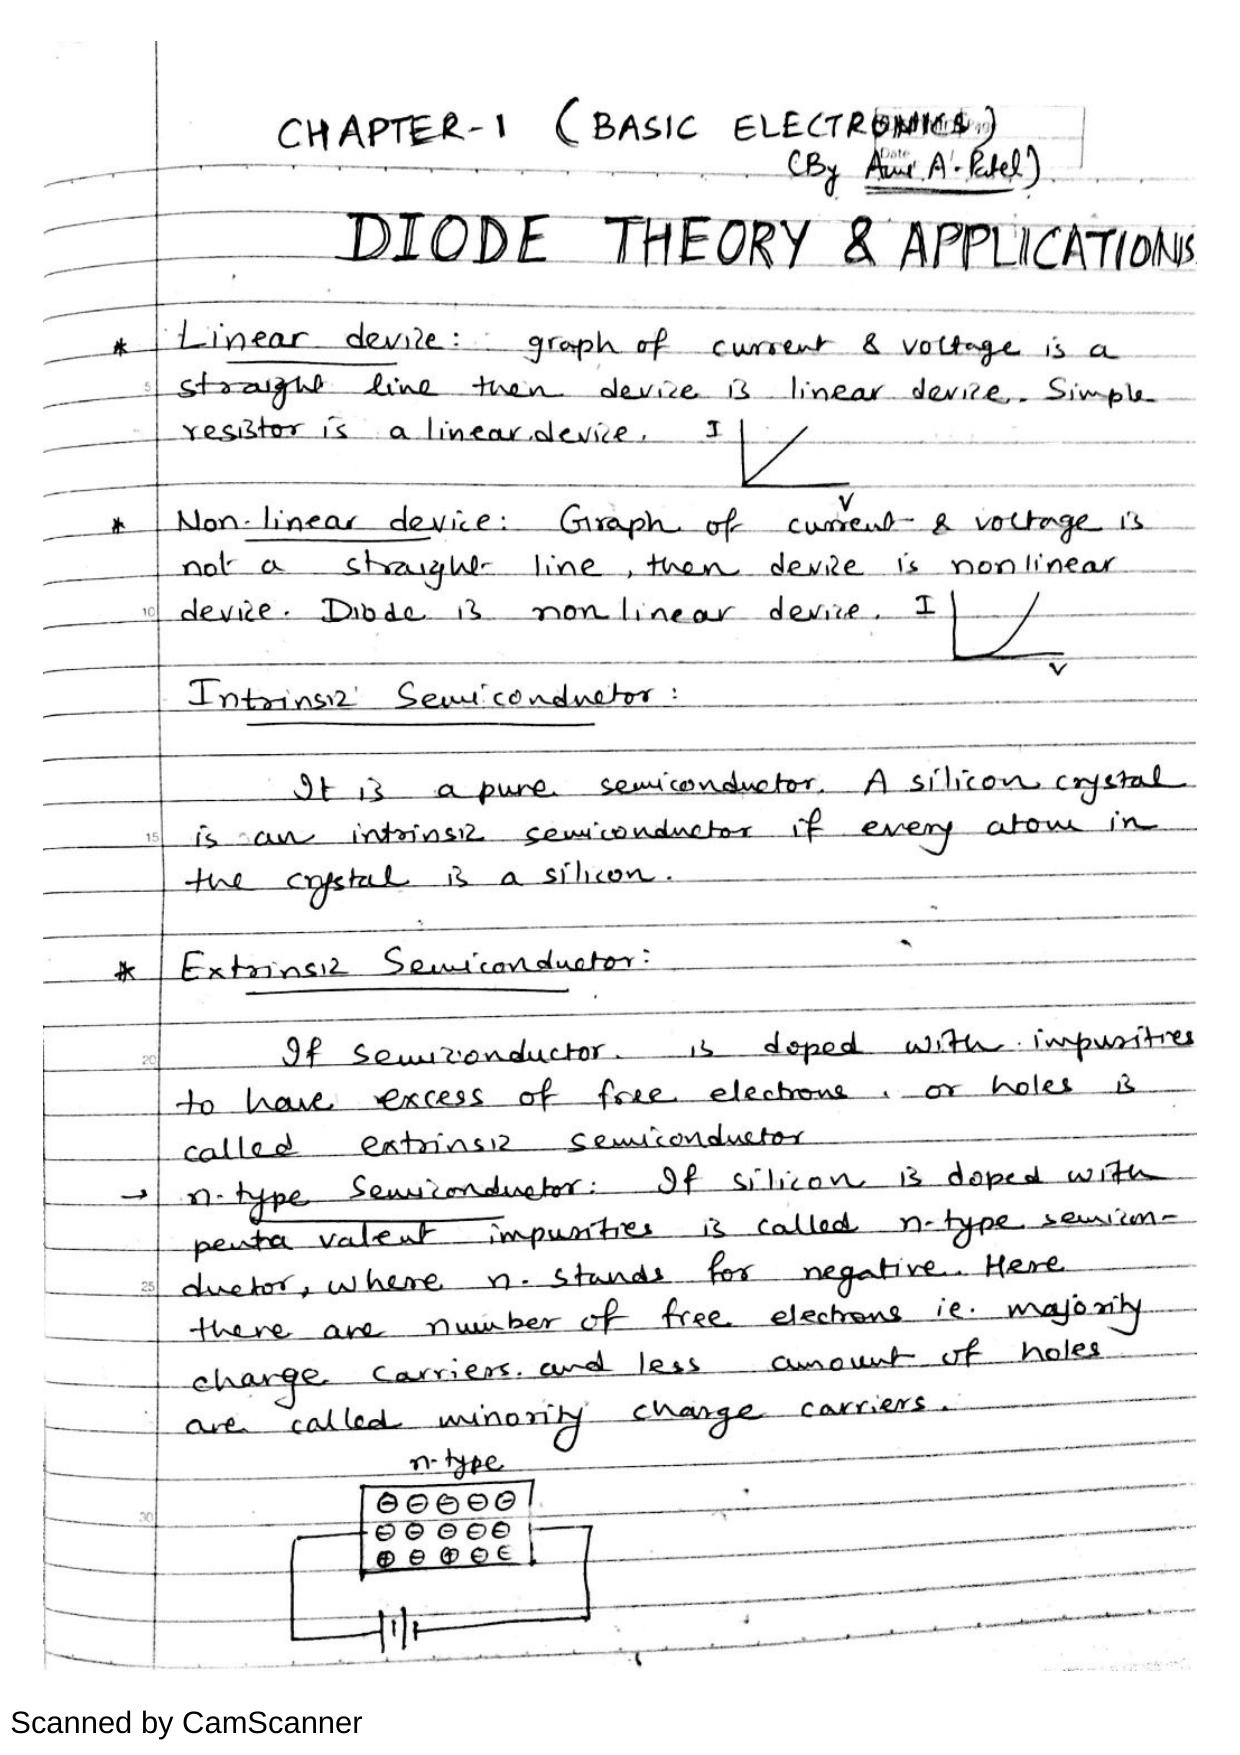 CHAPTER-1 (BASIC ELECTRONICS)
Date
(By A. Patel)
DIODE THEORY & APPLICATIONS
* Linear device: graph of current & voltage is a
5 straight line then device is linear device. Simple
resistor is a linear device. I
V
* Non-linear device: Graph of current & voltage is
not a straight line, then device is nonlinear
10 device. Diode is non linear device. I
V
Intrinsic Semiconductor:
It is a pure semiconductor. A silicon crystal
15 is an intrinsic semiconductor if every atom in
the crystal is a silicon.
* Extrinsic Semiconductor:
20 If semiconductor is doped with impurities
to have excess of free electrons, or holes is
called extrinsic semiconductor
→ n-type Semiconductor: If silicon is doped with
penta valent impurities is called n-type semicon-
25 ductor, where n stands for negative. Here
there are number of free electrons ie. majority
charge carriers. and less amount of holes
are called minority charge carriers.
n-type
⊖ ⊖ ⊖ ⊖ ⊖
30 ⊖ ⊖ ⊖ ⊖ ⊖
⊕ ⊖ ⊕ ⊖ ⊖
Scanned by CamScanner